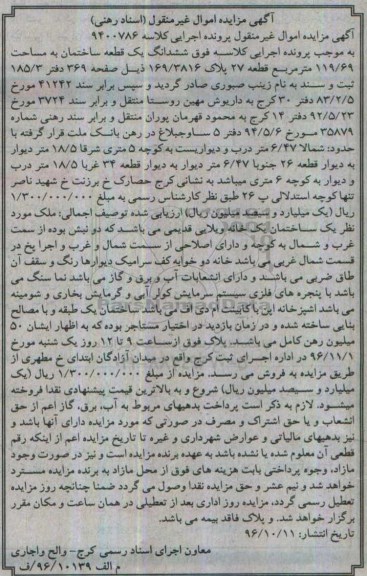 آگهی مزایده اموال غیرمنقول (اسناد رهنی)
آگهی مزایده اموال غیرمنقول پرونده اجرایی کلاسه ۹۴۰۰۷۸۶
به موجب پرونده اجرایی کلاسه فوق ششدانگ یک قطعه ساختمان به مساحت
۱۱۹/۶۹ مترمربع قطعه ۲۷ پلاک ۱۶۹/۳۸۱۶ ذیل صفحه ۳۶۹ دفتر ۱۸۵/۳
ثبت و سند به نام زینب صبوری صادر گردید و سپس برابر سند ۴۱۲۴۲ مورخ
۸۳/۲/۵ دفتر ۳۰ کرج به داریوش مهین روستا منتقل و برابر سند ۳۷۲۴ مورخ
۹۲/۵/۲۳ دفتر ۱۴ کرج به محمود قهرمان پوران منتقل و برابر سند رهنی شماره
۳۵۸۷۹ مورخ ۹۴/۵/۶ دفتر ۵ ساوجبلاغ در رهن بانک ملت قرار گرفته با
حدود: شمالا ۶/۴۷ متر درب و دیواریست به کوچه ۵ متری شرقا ۱۸/۵ متر دیوار
به دیوار قطعه ۲۶ جنوبا ۶/۴۷ متر دیوار به دیوار قطعه ۳۴ غربا ۱۸/۵ متر درب
و دیوار به کوچه ۶ متری میباشد به نشانی کرج حصارک خ برزنت خ شهید ناصر
تنها کوچه استدلالی پ ۴۶ طبق نظر کارشناس رسمی به مبلغ ۱/۳۰۰/۰۰۰/۰۰۰
ریال (یک میلیارد و سیصد میلیون ریال) ارزیابی شده توصیف اجمالی: ملک مورد
نظر یک ساختمان یک خانه ویلایی قدیمی می باشد که دو نبش بوده از سمت
غرب و شمال به کوچه و دارای اصلاحی از سمت شمال و غرب و اجرا پخ در
قسمت شمال غربی می باشد خانه دو خوابه کف سرامیک دیوارها رنگ و سقف آن
طاق ضربی می باشد و دارای انشعابات آب و برق و گاز می باشد نما سنگ می
باشد با پنجره های فلزی سیستم سرمایش کولر آبی و گرمایش بخاری و شومینه
می باشد آشپزخانه اپن با کابینت ام دی اف می باشد ساختمان یک طبقه و با مصالح
بنایی ساخته شده و در زمان بازدید در اختیار مستاجر بوده که به اظهار ایشان ۵۰
میلیون رهن کامل می باشد. پلاک فوق از ساعت ۹ تا ۱۲ روز یک شنبه مورخ
۹۶/۱۱/۱ در اداره اجرای ثبت کرج واقع در میدان آزادگان ابتدای خ مطهری از
طریق مزایده به فروش می رسد. مزایده از مبلغ ۱/۳۰۰/۰۰۰/۰۰۰ ریال (یک
میلیارد و سیصد میلیون ریال) شروع و به بالاترین قیمت پیشنهادی نقدا فروخته
میشود. لازم به ذکر است پرداخت بدهیهای مربوط به آب، برق، گاز اعم از حق
انشعاب و یا حق اشتراک و مصرف در صورتی که مورد مزایده دارای آنها باشد و
نیز بدهیهای مالیاتی و عوارض شهرداری و غیره تا تاریخ مزایده اعم از اینکه رقم
قطعی آن معلوم شده یا نشده باشد به عهده برنده مزایده است و نیز در صورت وجود
مازاد، وجوه پرداختی بابت هزینه های فوق از محل مازاد به برنده مزایده مسترد
خواهد شد و نیم عشر و حق مزایده نقدا وصول می گردد ضمنا چنانچه روز مزایده
تعطیل رسمی گردد، مزایده روز اداری بعد از تعطیلی در همان ساعت و مکان مقرر
برگزار خواهد شد. و پلاک فاقد بیمه می باشد.
تاریخ انتشار: ۹۶/۱۰/۱۱
معاون اجرای اسناد رسمی کرج- والح واجاری
م الف ۹۶/۱۰۱۳۹/ف